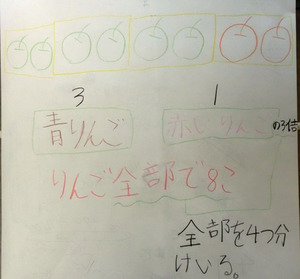 3 1
青りんご 赤いりんごの3倍
りんご全部で8こ
全部を4つ分
けいる。